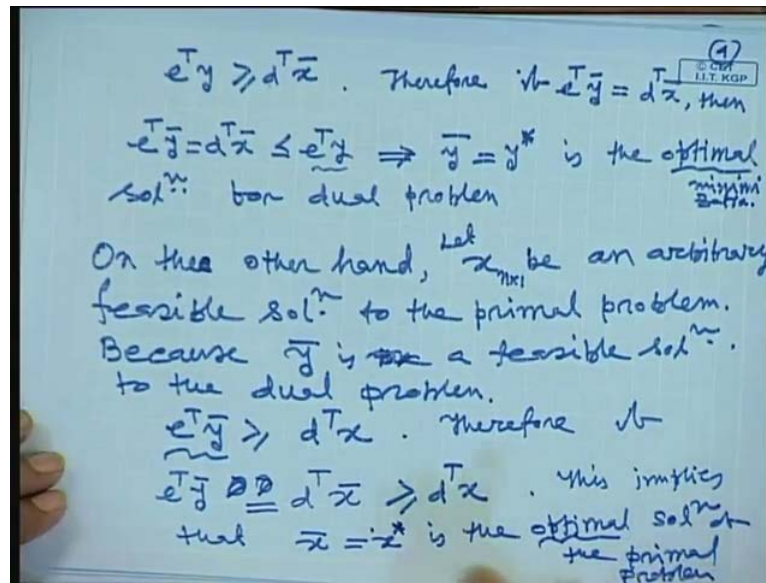 (9)
© CET
I.I.T. KGP
e^T y ≥ d^T x̄ . Therefore if e^T ȳ = d^T x̄, then
e^T ȳ = d^T x̄ ≤ e^T y ⇒ ȳ = y* is the optimal
minimization.
sol^n. for dual problem
On the other hand, Let x_{n×1} be an arbitrary
feasible sol^n. to the primal problem.
Because ȳ is a feasible sol^n.
to the dual problem.
e^T ȳ ≥ d^T x . Therefore if
e^T ȳ = d^T x̄ ≥ d^T x . This implies
that x̄ = x* is the optimal sol^n of
the primal
problem